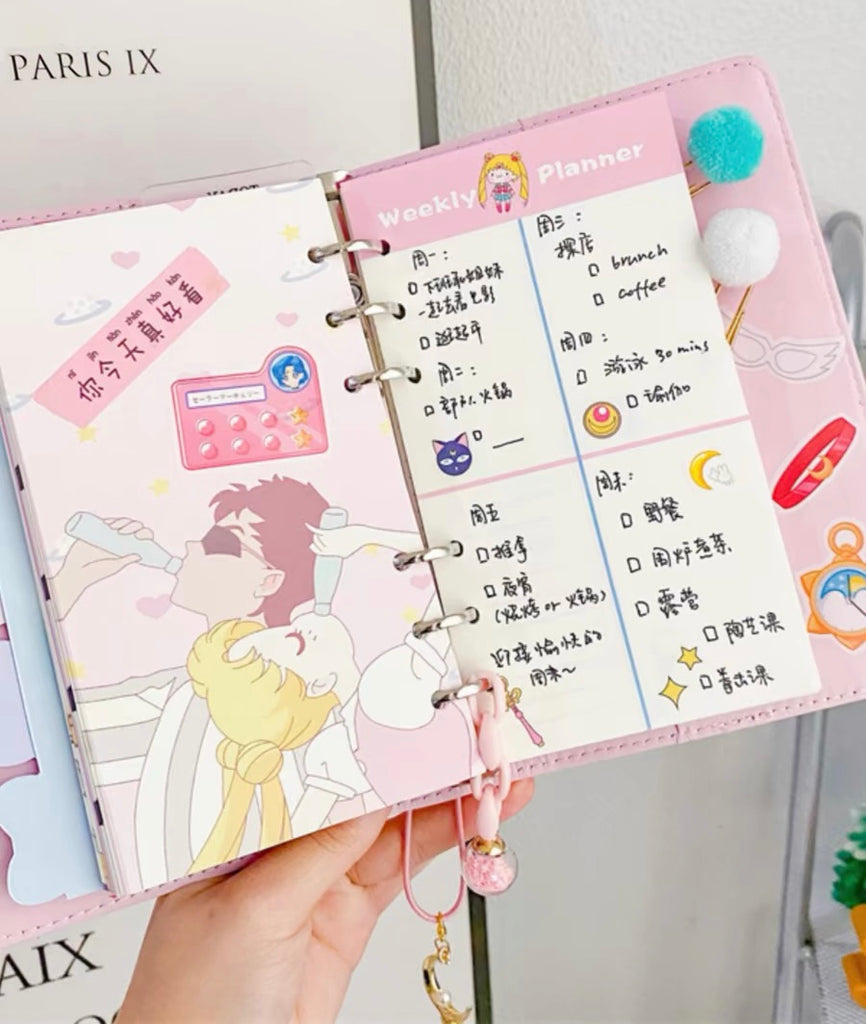 PARIS IX
TODAY
nǐ jīn tiān zhēn hǎo kàn
你今天真好看
セーラーマーキュリー
Weekly Planner
周一：
□ 下班和姐妹
一起去看电影
□ 逛超市
周二：
□ 部队火锅
□ __
周三：
探店
□ brunch
□ coffee
周四：
□ 游泳 30 mins
□ 瑜伽
周五
□ 推拿
□ 夜宵
(烧烤 or 火锅)
迎接愉快的
周末~
周末：
□ 野餐
□ 围炉煮茶
□ 露营
□ 陶艺课
□ 拳击课
AIX